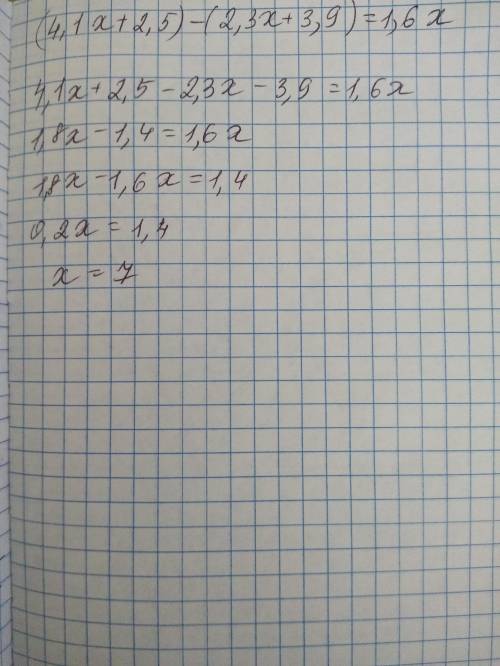 (4,1x+2,5)-(2,3x+3,9)=1,6x
4,1x+2,5-2,3x-3,9=1,6x
1,8x-1,4=1,6x
1,8x-1,6x=1,4
0,2x=1,4
x=7